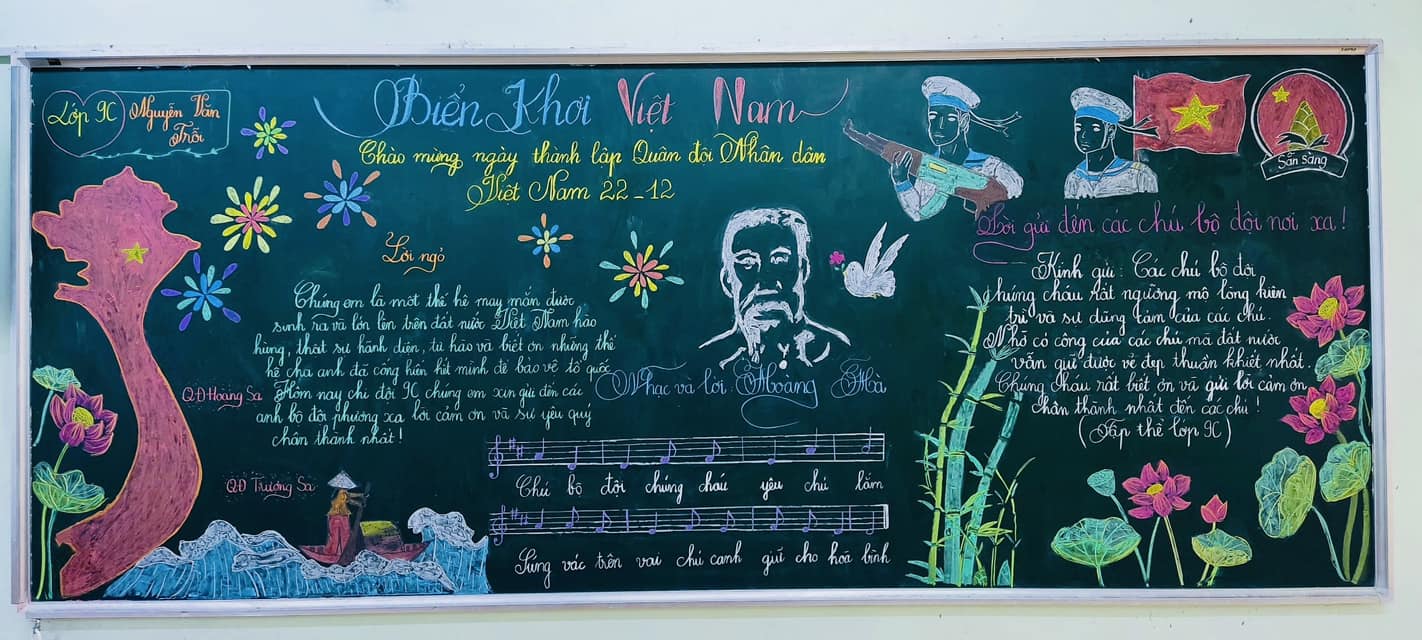 Lớp 9C
Nguyễn Văn
Trỗi
Biển Khơi Việt Nam
Chào mừng ngày thành lập Quân đội Nhân dân
Việt Nam 22-12
Sẵn sàng
Lời ngỏ
Chúng em là một thế hệ may mắn được
sinh ra và lớn lên trên đất nước Việt Nam hào
hùng, thật sự hãnh diện, tự hào và biết ơn những thế
hệ cha anh đã cống hiến hết mình để bảo vệ tổ quốc
Hôm nay chi đội 9C chúng em xin gửi đến các
anh bộ đội phương xa lời cảm ơn và sự yêu quý
chân thành nhất!
QĐ Hoàng Sa
QĐ Trường Sa
Nhạc và lời: Hoàng Hà
Chú bộ đội chúng cháu yêu chú lắm
Súng vác trên vai chú canh giữ cho hoà bình
Lời gửi đến các chú bộ đội nơi xa!
Kính gửi: Các chú bộ đội
Chúng cháu rất ngưỡng mộ lòng kiên
trì và sự dũng cảm của các chú.
Nhờ có công của các chú mà đất nước
vẫn giữ được vẻ đẹp thuần khiết nhất.
Chúng cháu rất biết ơn và gửi lời cảm ơn
chân thành nhất đến các chú!
(Tập thể lớp 9C)